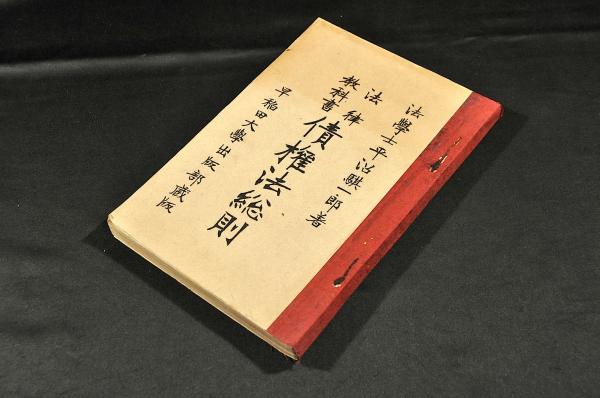 法學士 平沼騏一郎著
法律
教科書
債権法総則
早稲田大學出版部蔵版